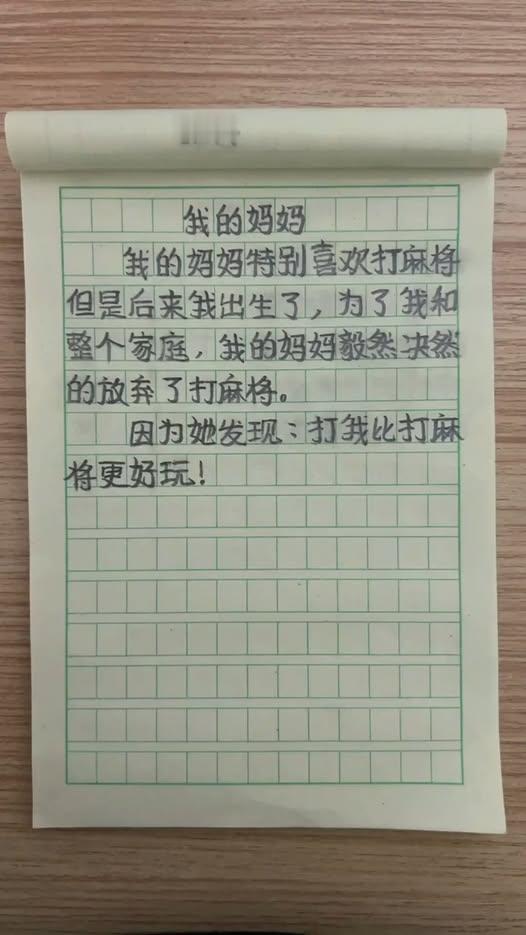 我的妈妈
我的妈妈特别喜欢打麻将
但是后来我出生了，为了我和
整个家庭，我的妈妈毅然决然
的放弃了打麻将。
因为她发现：打我比打麻
将更好玩！